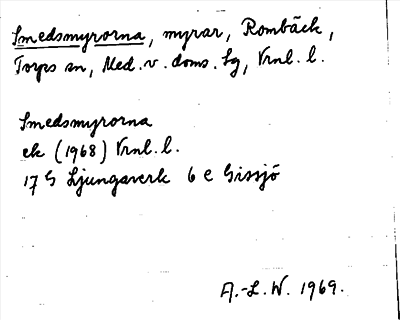 Smedsmyrorna, myrar, Rombäck,
Torps sn, Med. v. doms. Lg, Vrnl. l.
Smedsmyrorna
ek (1968) Vrnl. l.
17 G Ljungaverk 6 e Gissjö
A.-L. W. 1969.